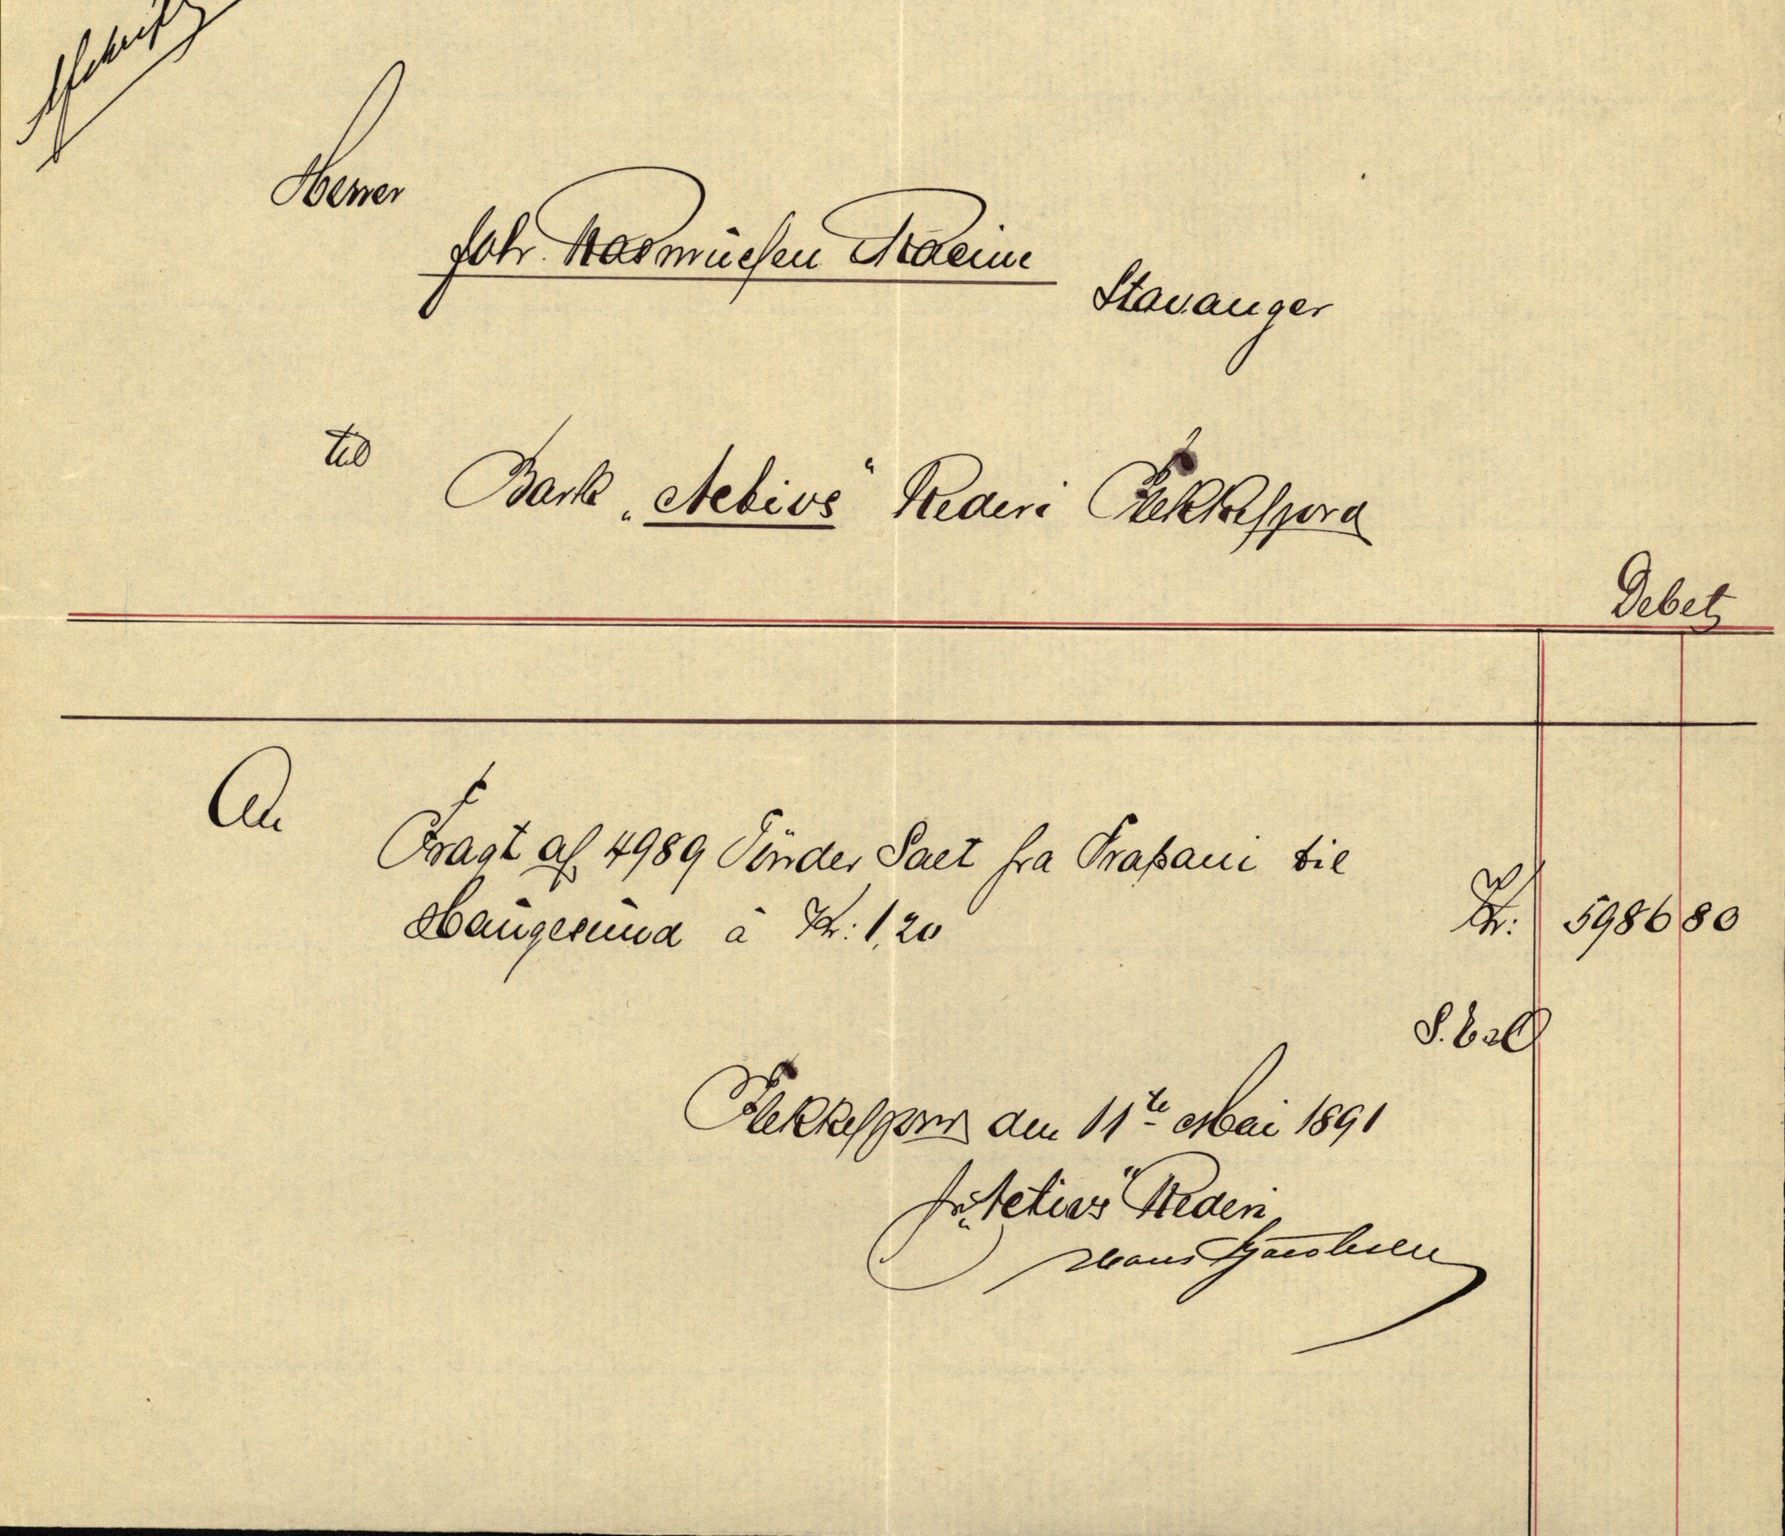 Afskrift
Herrer
Joh. Rasmussen Racine
Stavanger
til
Bark „Aetius“ Rederi Flekkefjord
Debet
An
Fragt af 4989 Tönder Salt fra Trapani til
Haugesund à Kr: 1,20
Kr: 5986 80
S. E & O
Flekkefjord den 11te Mai 1891
for „Aetius“ Rederi
Hans